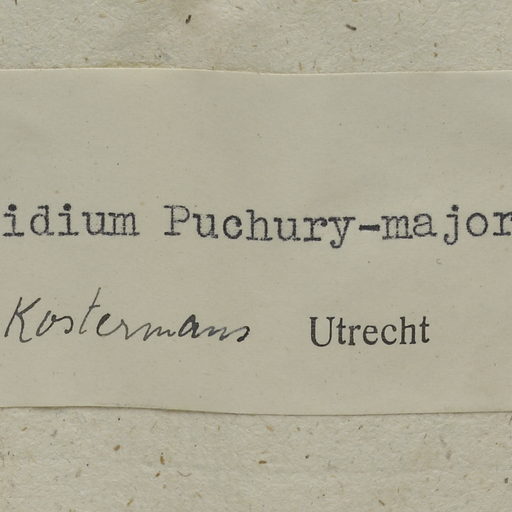 idium Puchury-major
Kostermans Utrecht